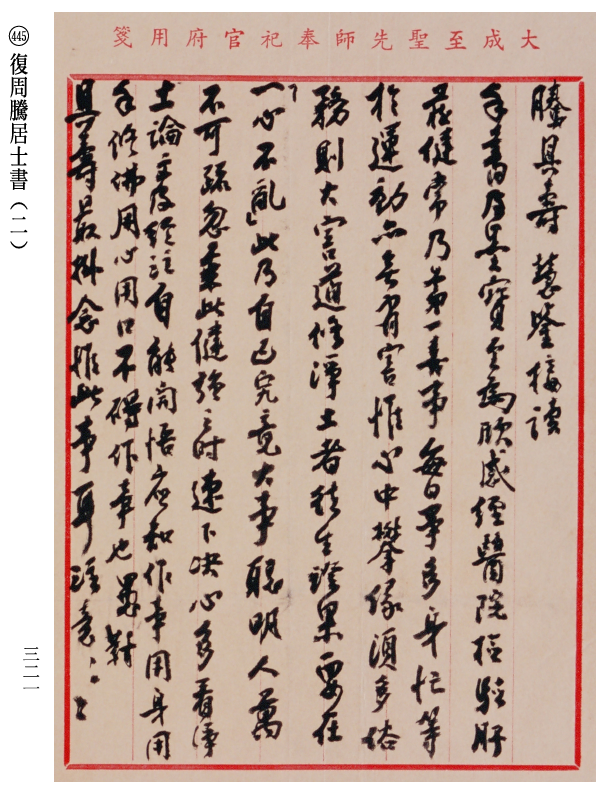 大成至聖先師奉祀官府用箋
騰具壽 慧鑒接讀
手書乃墨寶至為欣感經醫院檢驗肝
健常乃第一喜事每日事多身忙等
於運動亦無有害惟心中攀緣須多俗
務則大害道修淨土者往生證果要在
「一心不亂」此乃自己究竟大事聰明人萬
不可疏忽乘此健強之時速下决心多看淨
土論文及經註自能開悟應知作事用身用
手修佛用心用口不礙作事也
具壽最掛念惟此事耳
445 復周騰居士書(二)
三二一